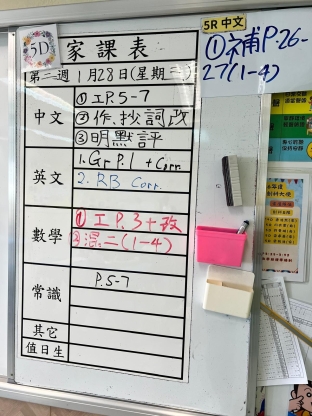 5D
家課表
第二週 1月28日(星期二)
中文
①工P.5-7
②作.抄詞改
③明默評
英文
1. Gr P.1 + Corr.
2. RB Corr.
數學
①工P.3+改
②混二(1-4)
常識
P.5-7
其它
值日生
5R 中文
①補P.26-
27(1-4)